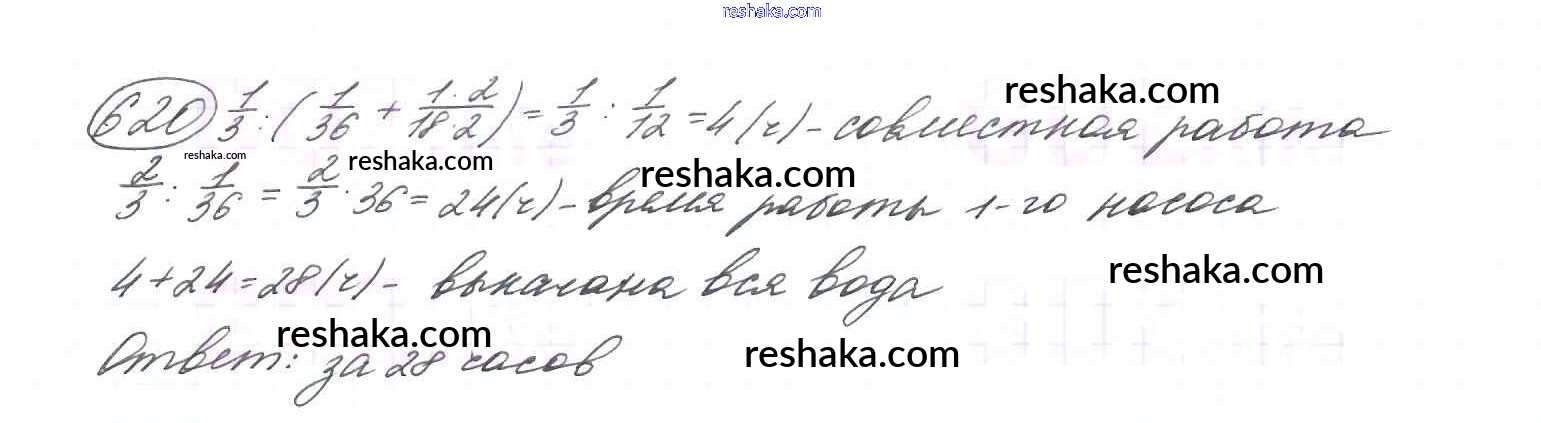 reshaka.com
620 1/3 : (1/36 + 1·2/18·2) = 1/3 : 1/12 = 4 (ч) – совместная работа
reshaka.com
reshaka.com
reshaka.com
reshaka.com
2/3 : 1/36 = 2/3 · 36 = 24 (ч) – время работы 1-го насоса
4 + 24 = 28 (ч) – выкачана вся вода
reshaka.com
Ответ: за 28 часов
reshaka.com
reshaka.com